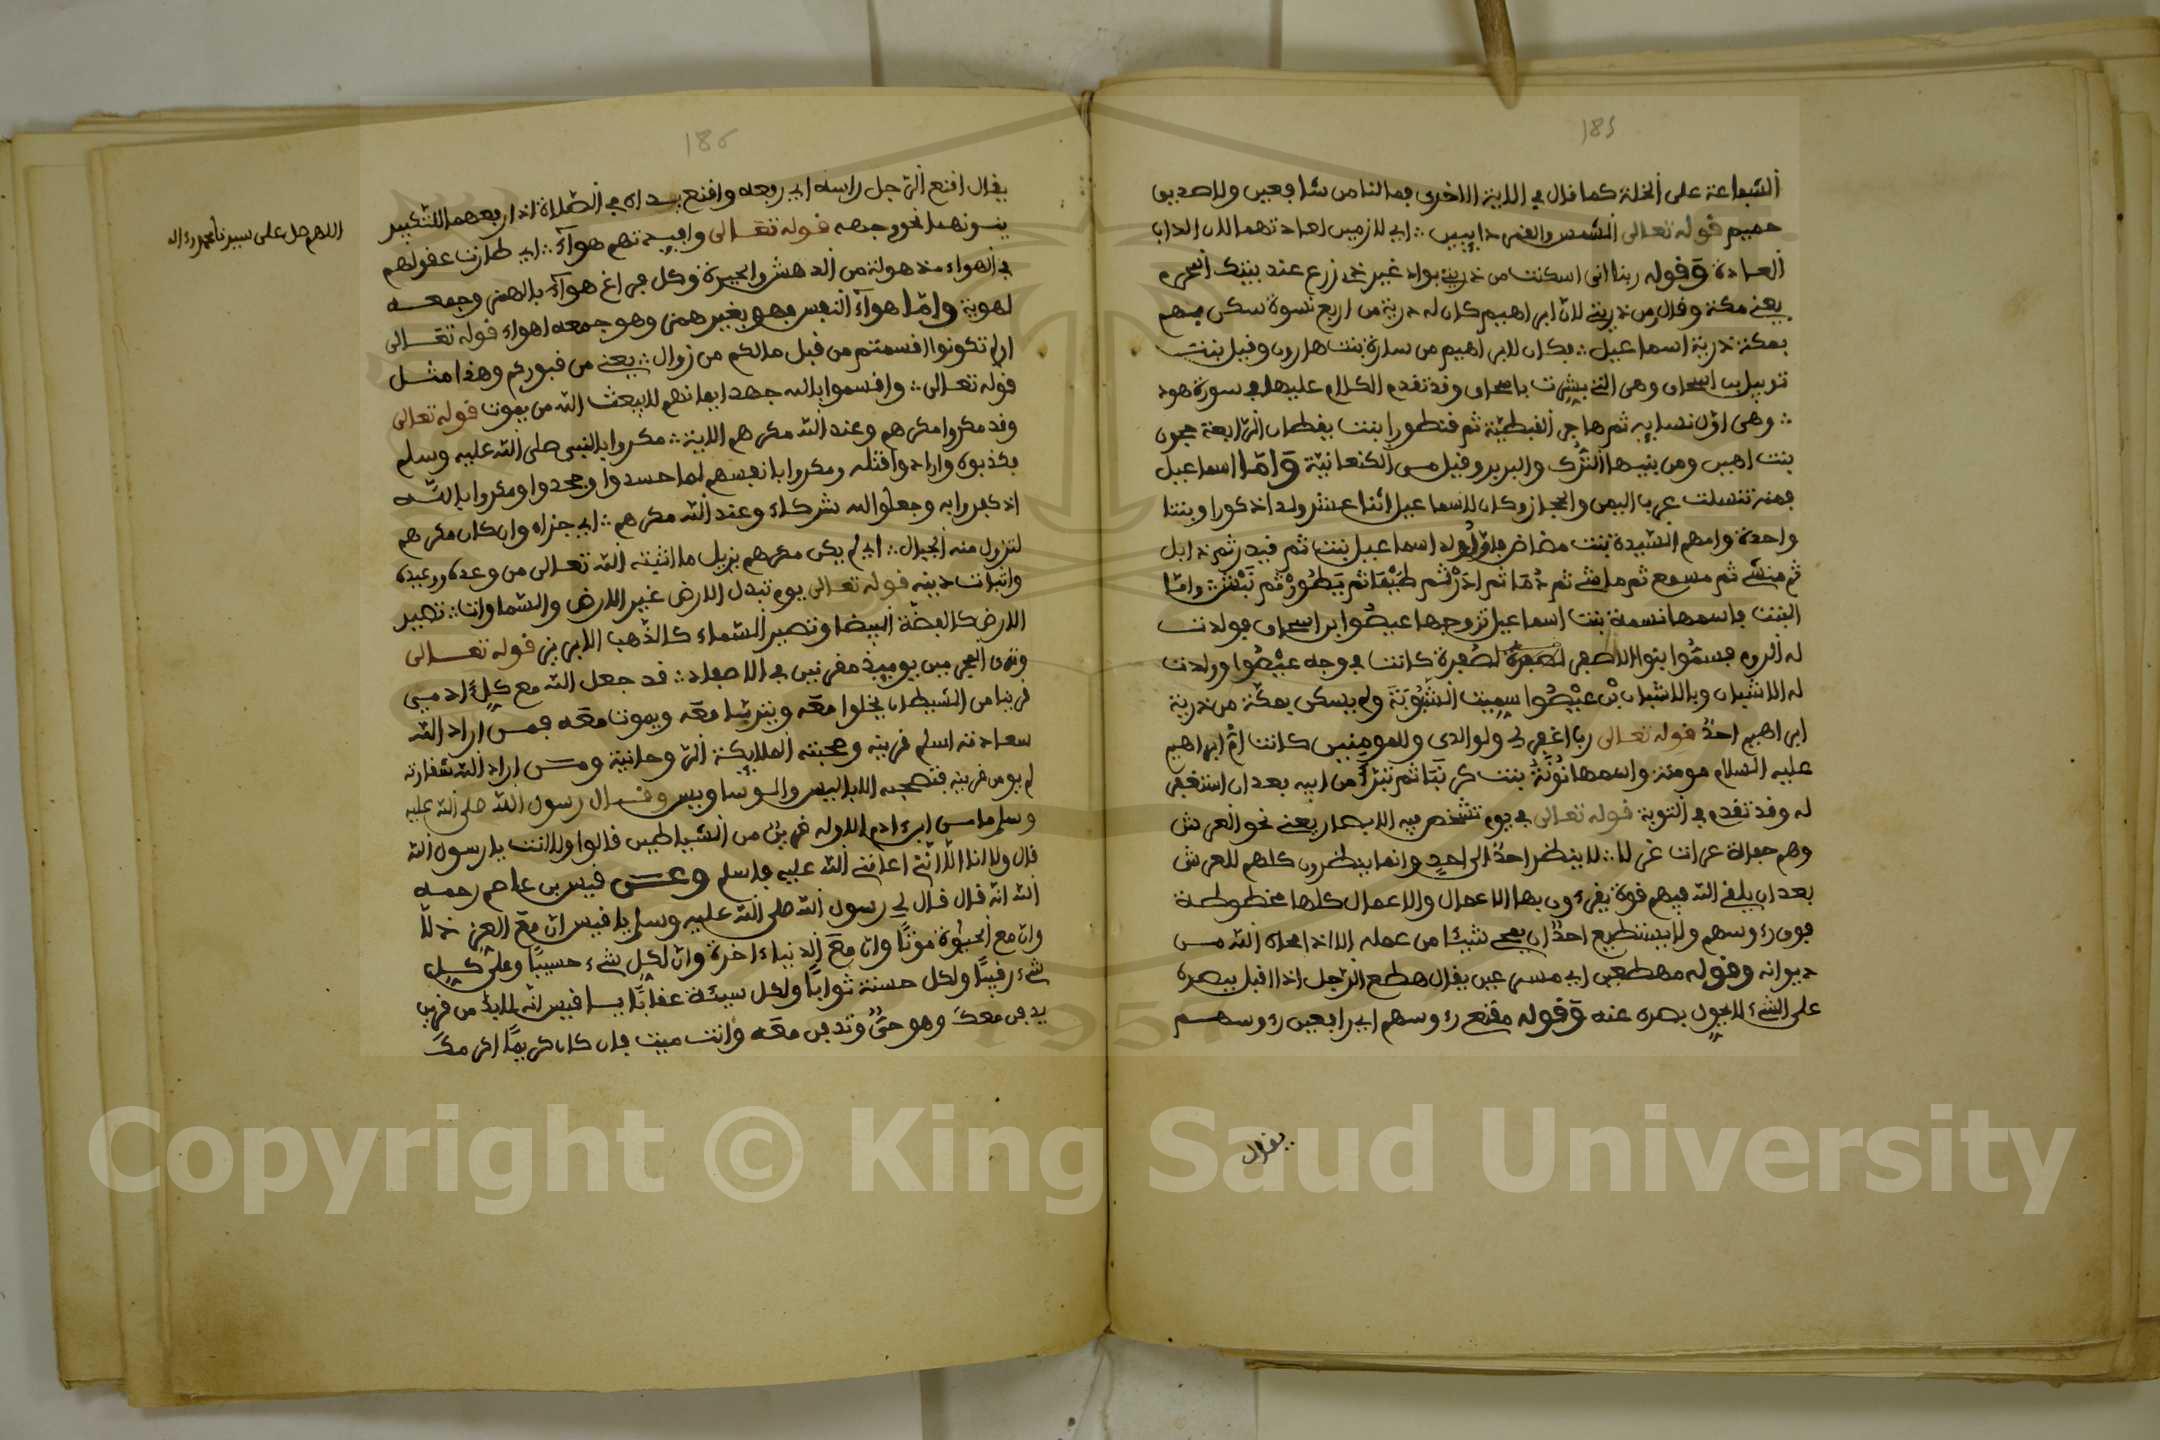 185
الشفاعة على الخلة كما قال في الاية الاخرى فما لنا من شافعين ولا صديق
حميم قوله تعالى الشمس والقمر دايبين ∴ اي لازمين لعادتهما لان الداب
العادة وقوله ربنا اني اسكنت من ذريتي بواد غير ذي زرع عند بيتك المحرم
يعني مكة وقال من ذريتي لان ابراهيم كان له ذرية من اربع نسوة سكن منهم
بمكة ذرية اسماعيل ∴ فكان لابراهيم من سارة بنت هارون وقيل بنت
تويبل اسحاق وهي التي بشرت باسحاق وقد تقدم الكلام عليها في سورة هود
∴ وهي اول نسايه ثم هاجر القبطية ثم قنطورا بنت يقطان الرابعة حجون
بنت اهيب ومن بنيها الترك والبربر وقيل من الكنعانية واما اسماعيل
فمنه تنسلت عرب اليمن والحجاز وكان لاسماعيل اثنا عشر ولدا ذكورا وبنتا
واحدة وامهم السيدة بنت مضاض فاول ولد اسماعيل نبت ثم قيدر ثم ذابل
ثم منشي ثم مسمع ثم ماشي ثم دما ثم اذر ثم طيبقا ثم يطور ثم نبش ∴ واما
البنت فاسمها نسمة بنت اسماعيل تزوجها عيصوا بن اسحاق فولدت
له الروم فسموا بنوا الاصفر لصفرة كانت في وجه عيصوا وولدت
له الاشبان وبالاشبان بن عيصوا سميت ولم يسكن بمكة من ذرية
ابراهيم احد قوله تعالى ربنا اغفر لي ولوالدي وللمومنين كانت ام ابراهيم
عليه السلام مومنة واسمها نونة بنت كرنبا ثم تبرأ من ابيه بعد ان استغفر
له وقد تقدم في التوبة قوله تعالى في يوم تشخص فيه الابصار يعني نحو العرش
وهم حفاة عراة غرلا ∴ لا ينظر احد الى احد وانما ينظرون كلهم للعرش
بعد ان يلقي الله فيهم قوة يقرءون بها الاعمال والاعمال كلها مخطوطة
فوق رءوسهم ولا يستطيع احد ان يمحي شيئا من عمله الا اذا محاه الله من
ديوانه وقوله مهطعين اي مسرعين يقال هطع الرجل اذا اقبل ببصره
على الشيء لا يحول بصره عنه وقوله مقنع رءوسهم اي رافعين رءوسهم
يقال
186
يقال اقنع الرجل راسه اي رفعه واقنع يداه في الصلاة اذا رفعهما للتكبير
بهما نحو وجهه قوله تعالى وافيدتهم هواء ∴ اي طارت عقولهم
في الهواء مذهولة من الدهش والحيرة وكل فراغ هواء بالهمز وجمعه
اهوية واما هواء النفس فهو بغير همز وهو جمعه اهواء قوله تعالى
اولم تكونوا اقسمتم من قبل ما لكم من زوال ∴ يعني من قبوركم وهذا مثل
قوله تعالى ∴ واقسموا بالله جهد ايمانهم لا يبعث الله من يموت قوله تعالى
وقد مكروا مكرهم وعند الله مكرهم الاية ∴ مكروا بالنبي صلى الله عليه وسلم
بكذبوه وارادوا قتله ومكروا بانفسهم لما حسدوا وجحدوا ومكروا بالله
اذ كفروا به وجعلوا لله شركاء وعند الله مكرهم ∴ اي جزاه وان كان مكرهم
لتزول منه الجبال ∴ اي لم يكن مكرهم يزيل ما اثبته الله تعالى من وعده ووعيده
واثبات دينه قوله تعالى يوم تبدل الارض غير الارض والسماوات ∴ تصير
الارض كالفضة البيضا وتصير السماء كالذهب الابريز قوله تعالى
وترى المجرمين يوميذ مقرنين في الاصفاد ∴ قد جعل الله مع كل ادمي
قرينا من الشيطان يخلوا معه وينشا معه ويموت معه فمن اراد الله
سعادته اسلم قرينه وصحبته الملايكة الروحانية ومن اراد الله شقاوته
لم يومن قرينه فتصحبه الابالييس والوساويس وقال رسول الله صلى الله عليه
وسلم ما من ابن ادم الا وله قرين من الشياطين قالوا ولا انت يا رسول الله
قال ولا انا الا اني اعانني الله عليه فاسلم وعن قيس بن عاصم رحمه
الله انه قال قال لي رسول الله صلى الله عليه وسلم يا قيس ان مع العز ذلا
وان مع الحيوة موتا وان مع الدنياء اخرة وان لكل شيء حسيبا وعلى كل
شيء رقيبا ولكل حسنة ثوابا ولكل سيئة عقابا يا قيس انه لابد من قرين
يدفن معك وهو حي وتدفن معه وانت ميت فان كان كريما اكرمك
اللهم صل على سيدنا محمد واله
Copyright © King Saud University
1957